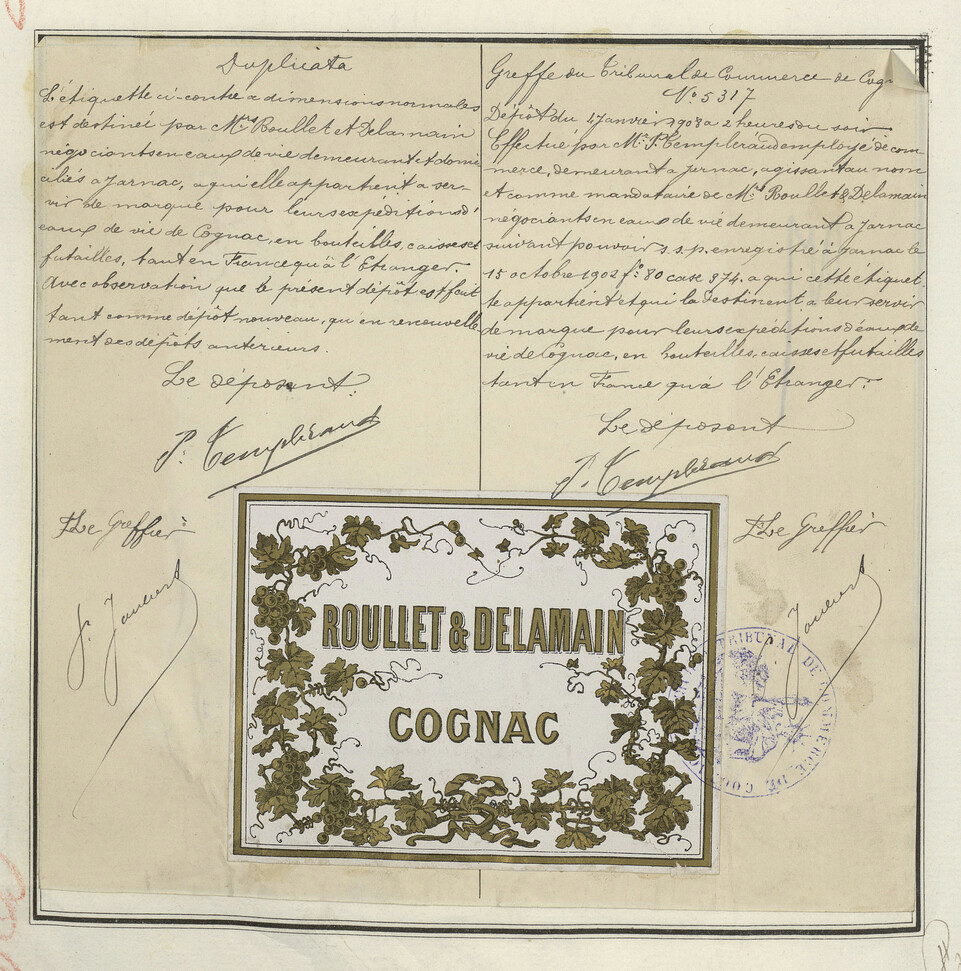 Duplicata
L'étiquette ci-contre a dimensions normales
est destinée par Mrs Roullet et Delamain
négociants en eaux de vie demeurant et domi
ciliés a Jarnac, a qui elle appartient a ser-
vir de marque pour leurs expéditions d'
eaux de vie de Cognac, en bouteilles, caisses et
futailles, tant en France qu'à l'Etranger.
Avec observation que le présent dépôt est fait
tant comme dépôt nouveau, qu'en renouvelle
ment des dépôts antérieurs.
Le déposant
P. Templéraud
Le Greffier
Greffe du Tribunal de Commerce de Cogn
No 5317
Dépôt du 4 Janvier 1908 a 2 heures du soir
Effectué par Mr P. Templéraud employé de com-
merce, demeurant a Jarnac, agissant au nom
et comme mandataire de Mrs Roullet & Delamain
négociants en eaux de vie demeurant à Jarnac
suivant pouvoir s.s.p. enregistré à Jarnac le
15 octobre 1902 fo 80 case 874, a qui cette etiquet-
te appartient et qui la destinent a leur servir
de marque pour leurs expéditions d'eaux de
vie de Cognac, en bouteilles, caisses et futailles
tant en France qu'à l'Etranger.
Le déposant
P. Templéraud
Le Greffier
ROULLET & DELAMAIN
COGNAC
TRIBUNAL DE COMMERCE DE COGNAC